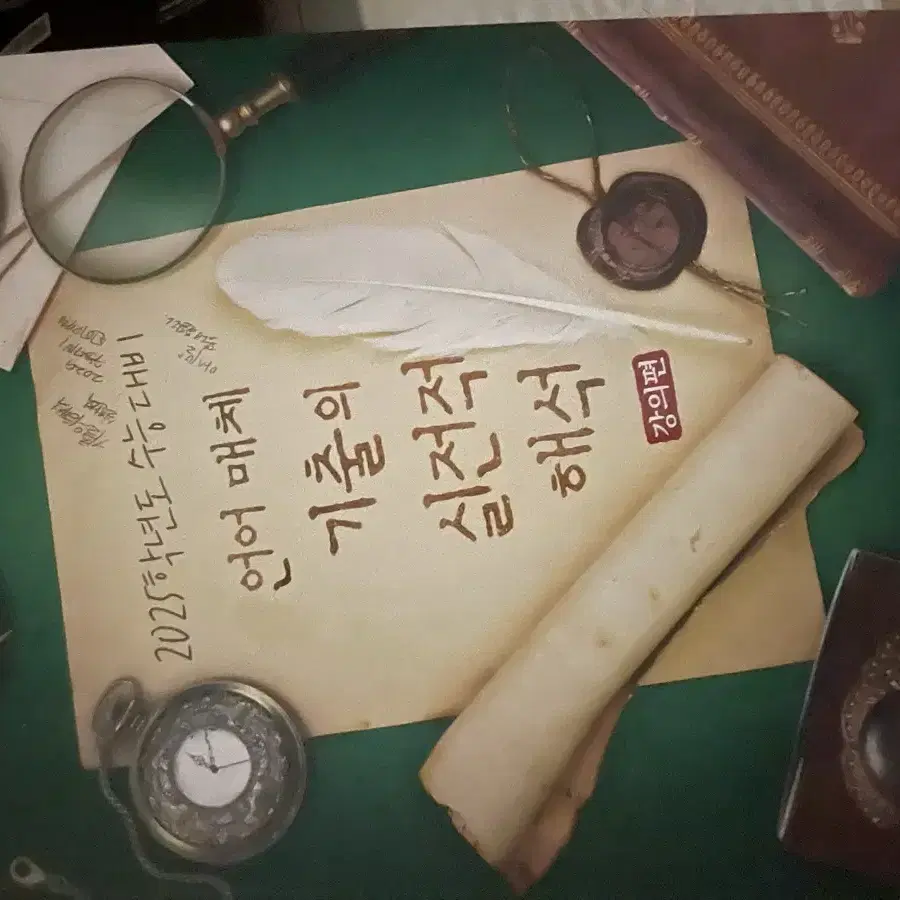 2025학년도 수능 대비
언어 매체
기출의
실전적
해석
강의편